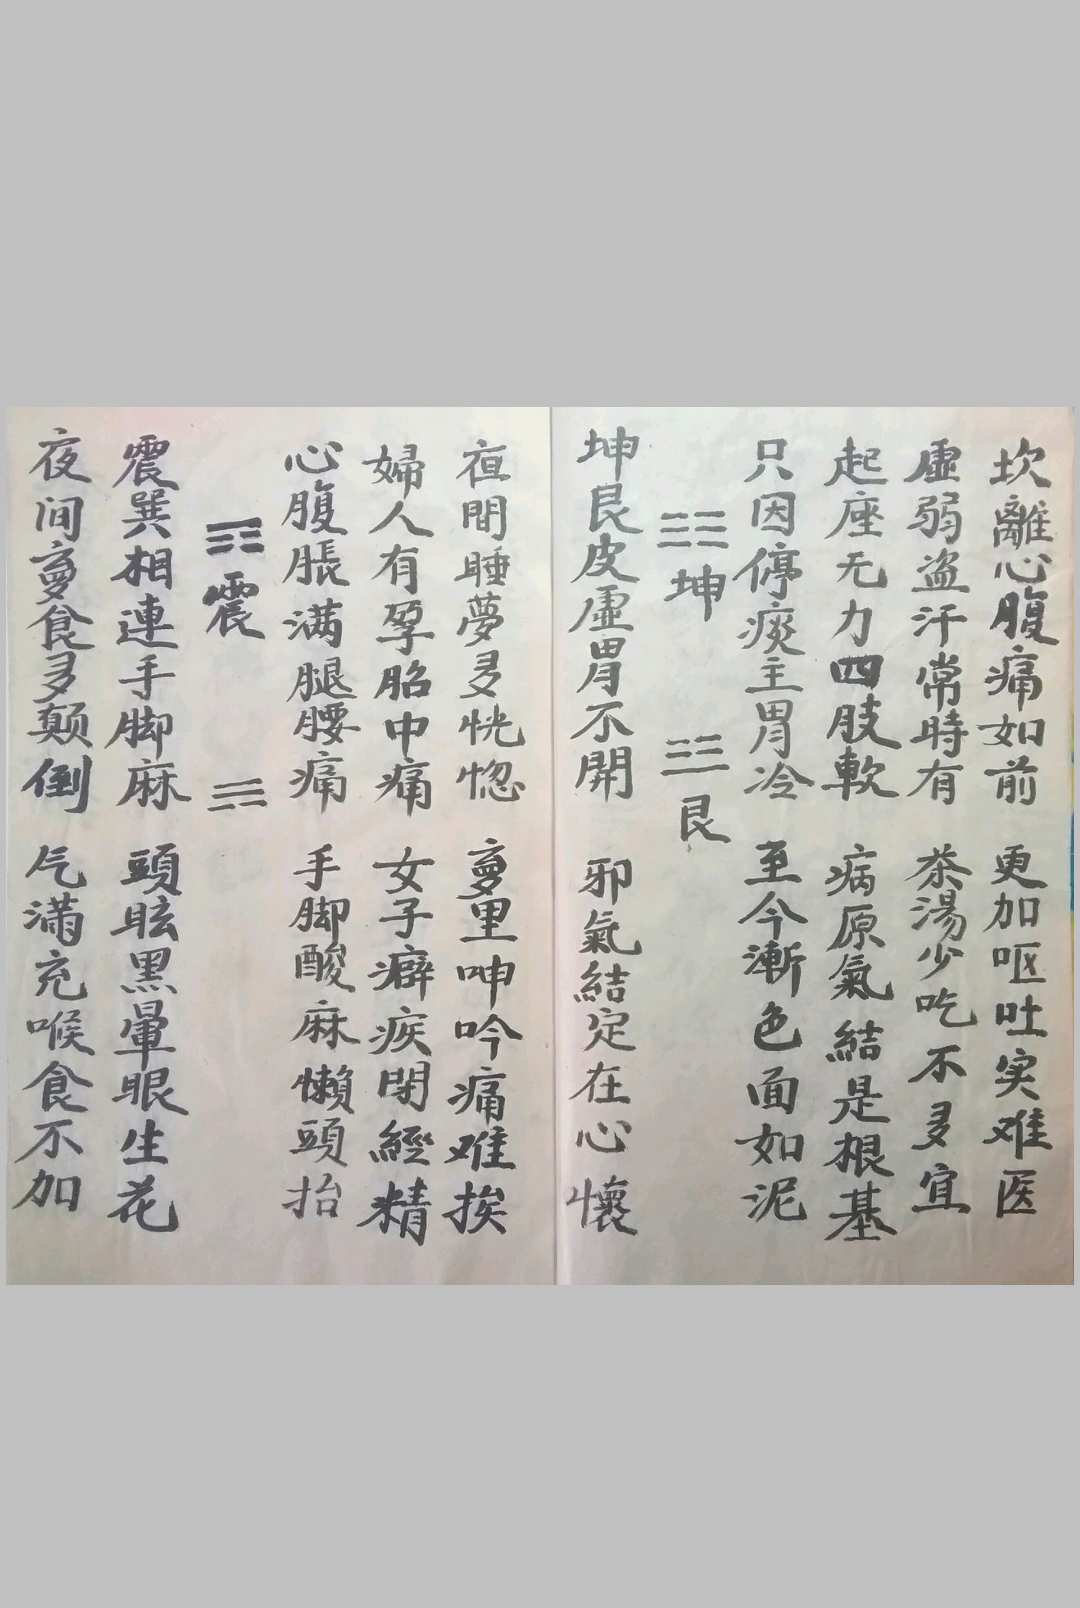 坎離心腹痛如前 更加呕吐实难医
虛弱盗汗常時有 茶湯少吃不多宜
起座无力四肢軟 病原氣結是根基
只因停痰主胃冷 至今漸色面如泥
☷坤 ☶艮
坤艮皮虛胃不開 邪氣結定在心懷
夜間睡夢多恍惚 夢里呻吟痛难挨
婦人有孕胎中痛 女子癖疾閉經精
心腹脹满腿腰痛 手脚酸麻懒頭抬
震
震巽相連手脚麻 頭眩黑暈眼生花
夜间夢食多颠倒 气满充喉食不加